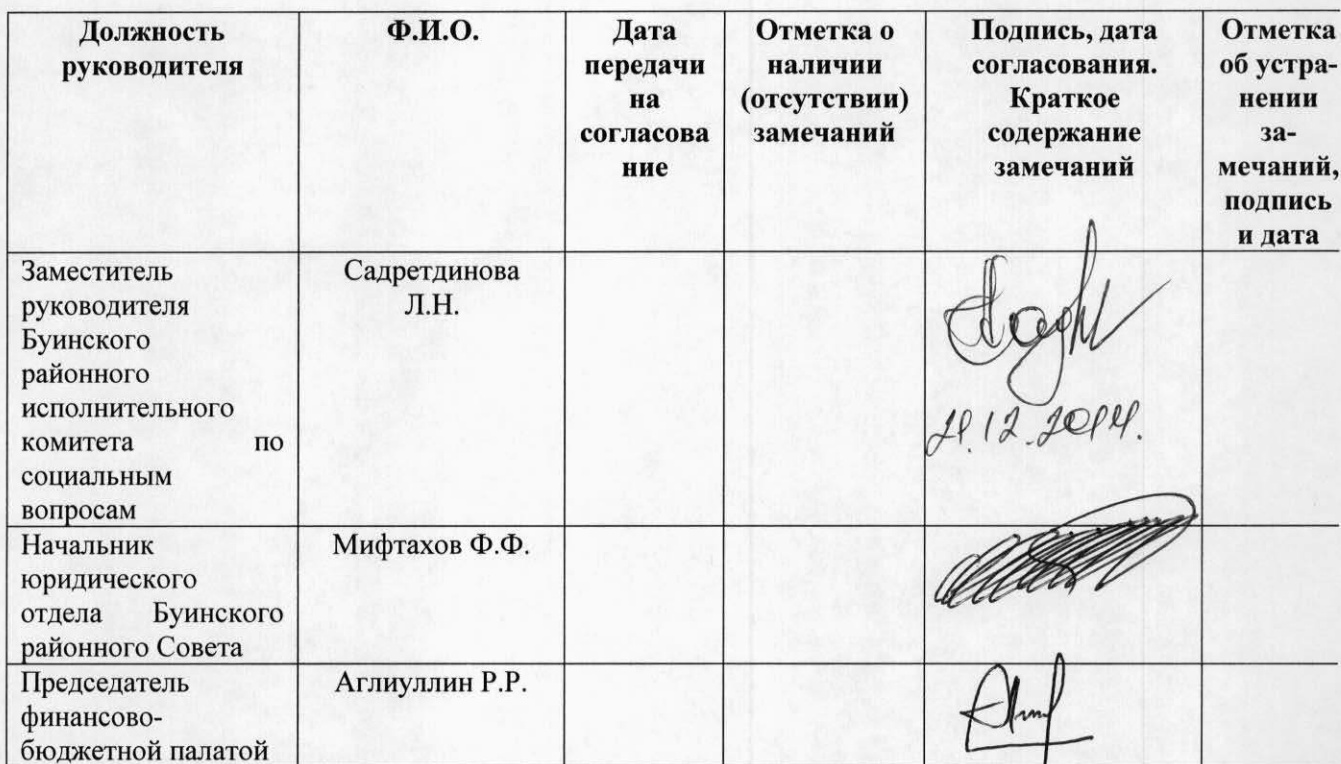 Должность
руководителя
Ф.И.О.
Дата
передачи
на
согласова
ние
Отметка о
наличии
(отсутствии)
замечаний
Подпись, дата
согласования.
Краткое
содержание
замечаний
Отметка
об устра-
нении
за-
мечаний,
подпись
и дата
Заместитель
руководителя
Буинского
районного
исполнительного
комитета по
социальным
вопросам
Садретдинова
Л.Н.
12.2014.
Начальник
юридического
отдела Буинского
районного Совета
Мифтахов Ф.Ф.
Председатель
финансово-
бюджетной палатой
Аглиуллин Р.Р.